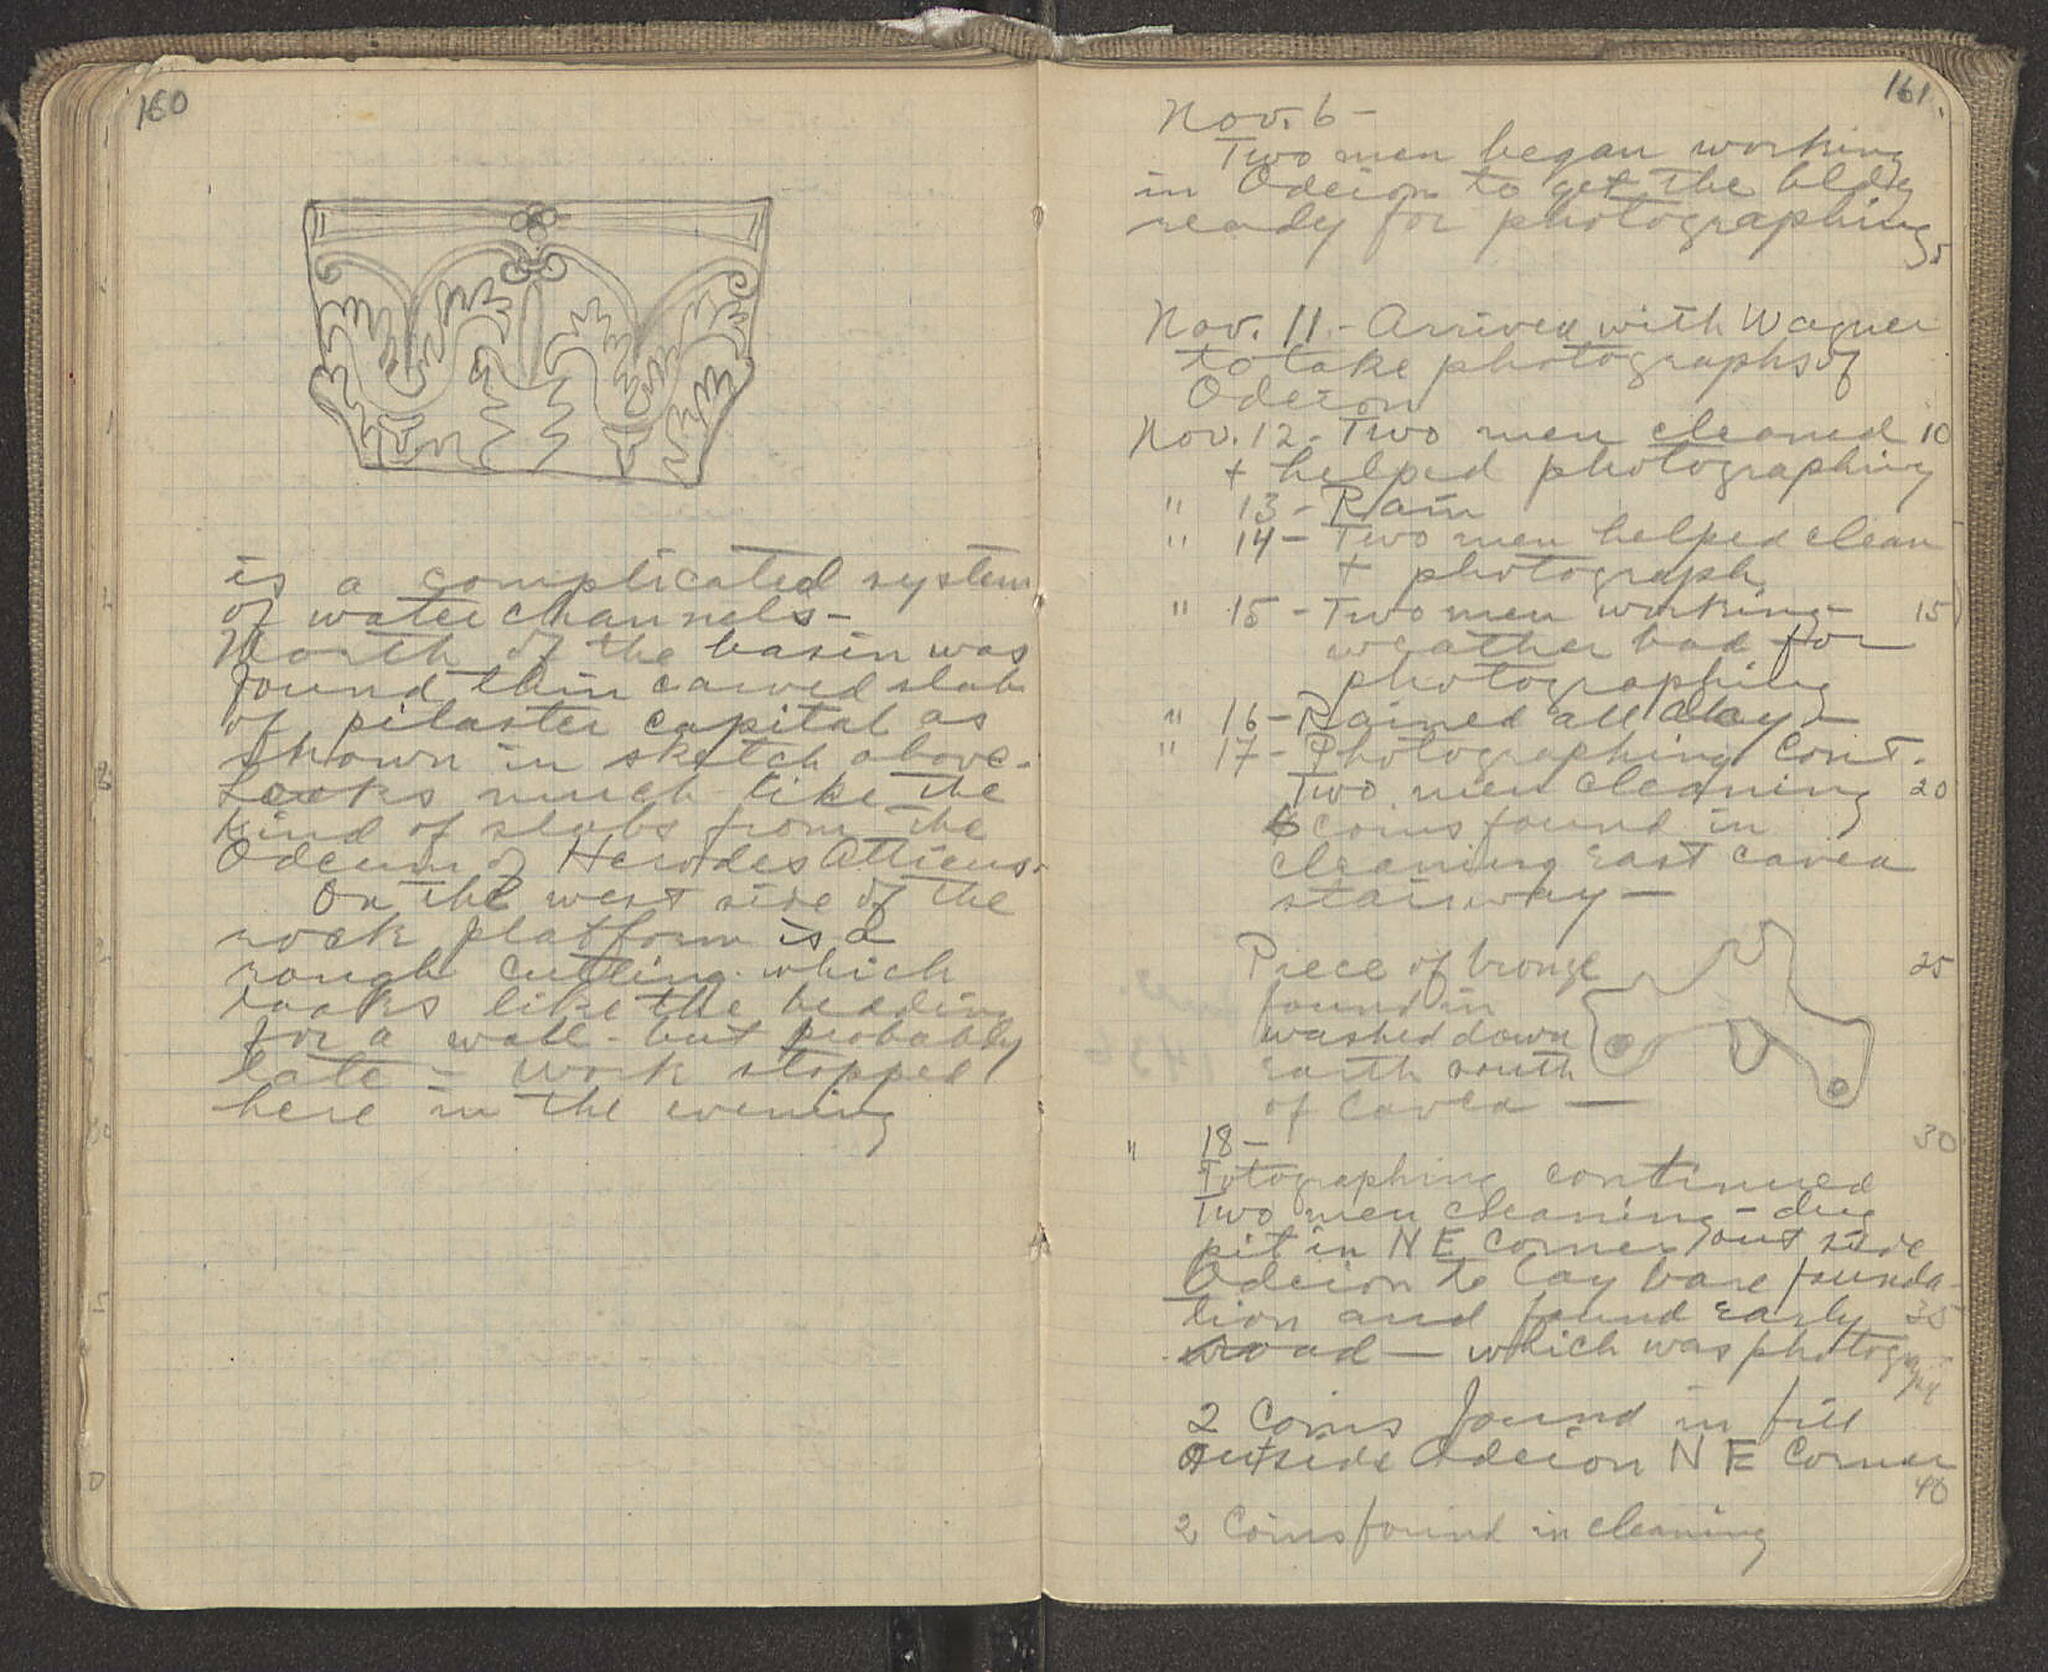 160
is a complicated system
of water channels-
North of the basin was
found thin carved slab
of pilaster capital as
shown in sketch above-
Looks much like the
kind of slabs from the
Odeum of Herodes Atticus-
On the west side of the
rock platform is a
rough cutting which
looks like the bedding
for a wall - but probably
late - Work stopped
here in the evening
161
Nov. 6 -
Two men began working
in Odeion to get the bldg
ready for photographing
5
Nov. 11 - Arrived with Wagner
to take photographs of
Odeion
Nov. 12 - Two men cleaned 10
+ helped photographing
" 13 - Rain
" 14 - Two men helped clean
+ photograph
" 15 - Two men working - 15
weather bad for
photographing
" 16 - Rained all day -
" 17 - Photographing Cont.
Two men cleaning 20
6 coins found in
cleaning East cavea
stairway -
Piece of bronze 25
found in
washed down
earth south
of Cavea -
" 18 - 30
Fotographing continued
Two men cleaning - dug
pit in NE Corner out side
Odeion to lay bare founda-
tion and found Early 35
road - which was photogra
2 Coins found in fill
outside Odeion NE Corner
40
2 Coins found in cleaning